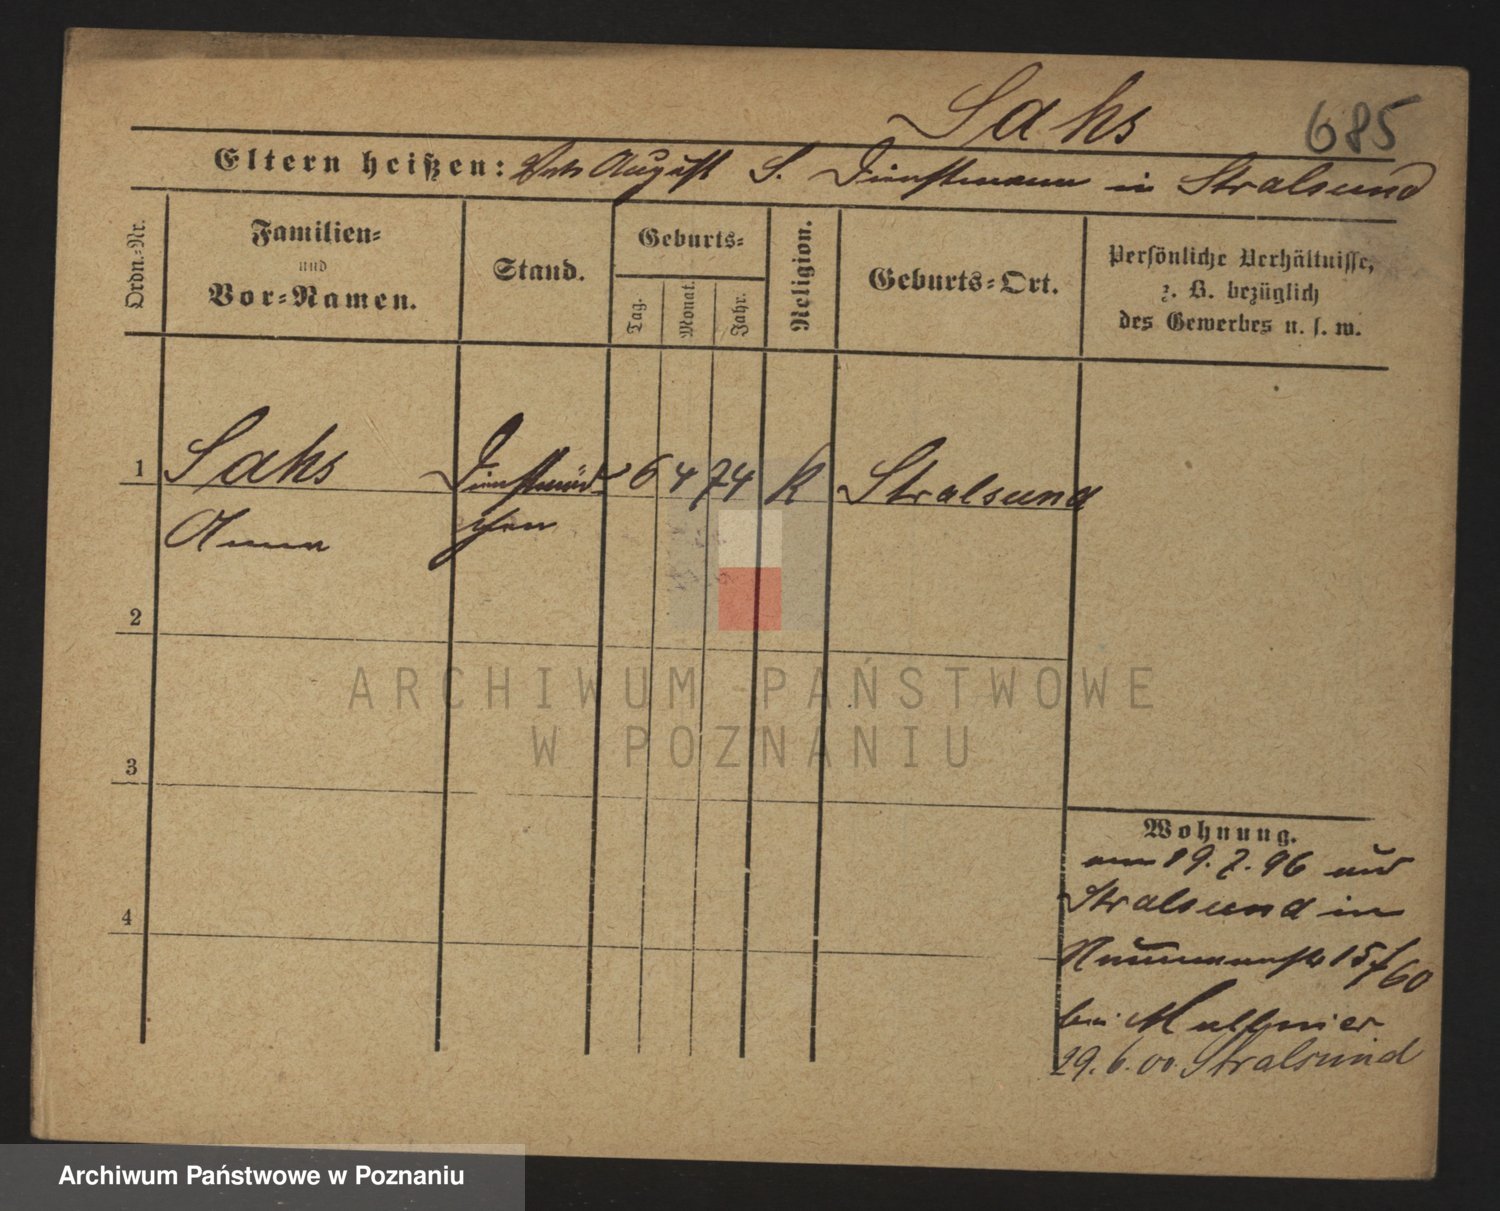 Sahs
685
Eltern heißen: August S. Dienstmann in Stralsund
Ordn.-Nr.
Familien-
und
Vor-Namen.
Stand.
Geburts-
Tag.
Monat.
Jahr.
Religion.
Geburts-Ort.
Persönliche Verhältnisse,
z. B. bezüglich
des Gewerbes u. s. w.
1
Sahs
Dienstmäd-
6
4
74
K
Stralsund
Anna
chen
2
3
4
ARCHIWUM PAŃSTWOWE
W POZNANIU
Wohnung.
am 19.7.96 aus
Stralsund in
Naumannstr 15
60
bei
29.6.00. Stralsund
Archiwum Państwowe w Poznaniu